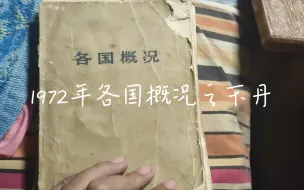 各国概况
1972年各国概况之不丹